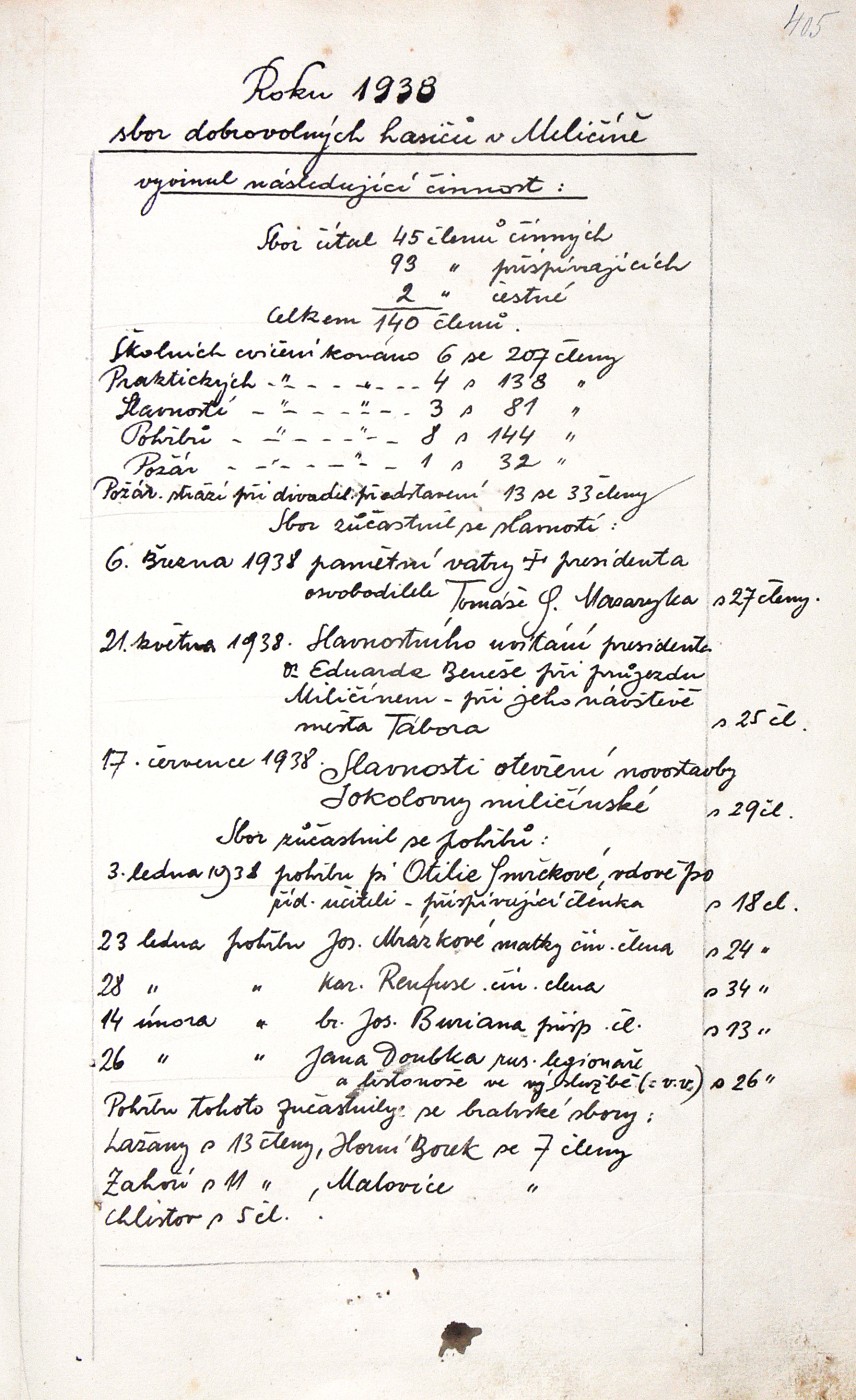 405
Roku 1938
sbor dobrovolných hasičů v Miličíně
vyvinul následující činnost:
Sbor čítal 45 členů činných
93 " přispívajících
2 " čestné
Celkem 140 členů.
Školních cvičení konáno 6 se 207 členy
Praktických - " - - - " - - - 4 s 138 "
Slavností - " - - - " - - 3 s 81 "
Pohřbů - - " - - - " - - 8 s 144 "
Požár - - " - - - " - - 1 s 32 "
Požár. stráží při divadel. představení 13 se 33 členy
Sbor zůčastnil se slavností:
6. Března 1938 pamětní vatry † presidenta
osvoboditele Tomáše G. Masaryka s 27 členy.
21. května 1938. Slavnostního uvítání presidenta
Dr Eduarda Beneše při průjezdu
Miličínem - při jeho návštěvě
města Tábora s 25 čl.
17. července 1938. Slavnosti otevření novostavby
Sokolovny miličínské s 29 čl.
Sbor zůčastnil se pohřbů:
3. ledna 1938 pohřbu pí Otilie Smrčkové, vdově po
říd. učiteli - přispívající členka s 18 čl.
23 ledna pohřbu Jos. Mrázkové matky čin. člena s 24 "
28 " " Kar. Renfuse čin. člena s 34 "
14 února " br. Jos. Buriana přisp. čl. s 13 "
26 " " Jana Doubka rus. legionáře
a listonoše ve výslužbě (: v. v.) s 26 "
Pohřbu tohoto zučastnily se bratrské sbory:
Lažany s 13 členy, Horní Borek se 7 členy
Zahoří s 11 " , Malovice "
Chlístov s 5 čl.